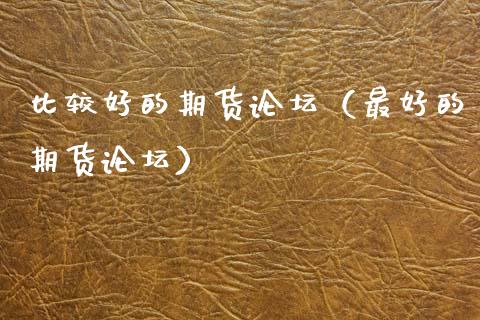 比较好的期货论坛（最好的
期货论坛）